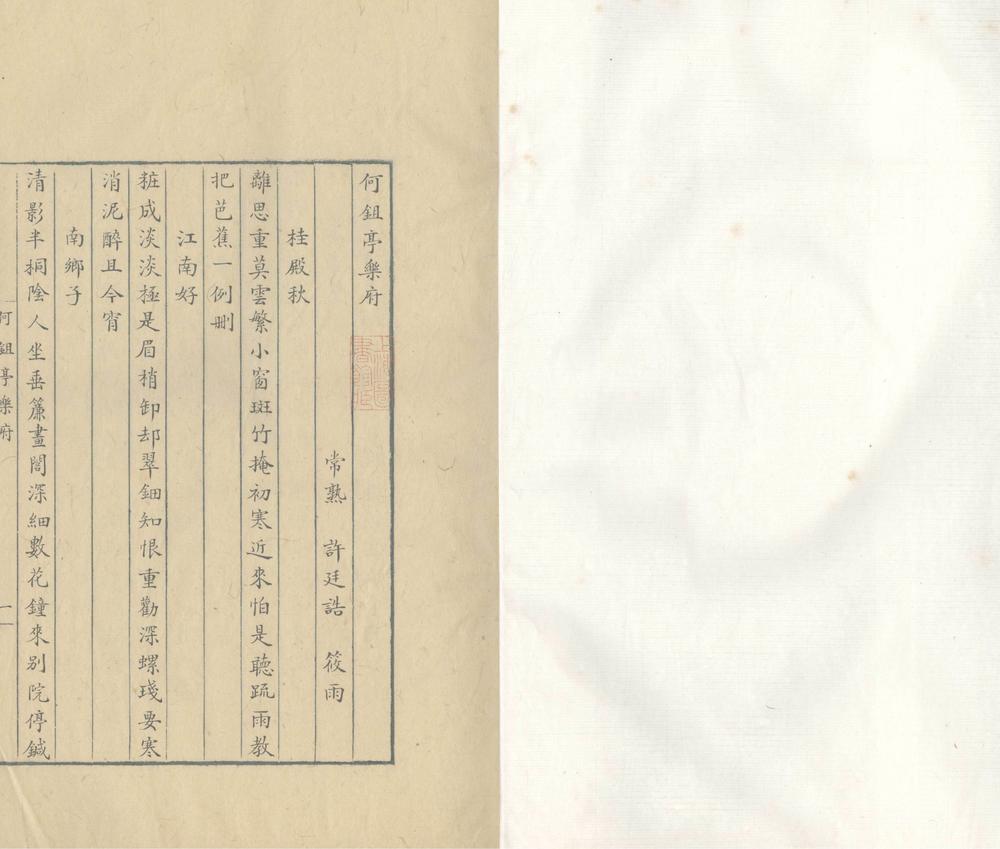 何鉏亭樂府
常熟　許廷誥　筱雨
桂殿秋
離思重莫雲繁小窗斑竹掩初寒近來怕是聽疏雨教
把芭蕉一例刪
江南好
粧成淡淡極是眉梢卸却翠鈿知恨重勸深螺琖要寒
消泥醉且今宵
南鄉子
清影半桐陰人坐垂簾晝閣深細數花鐘來別院停鍼
何鉏亭樂府
一